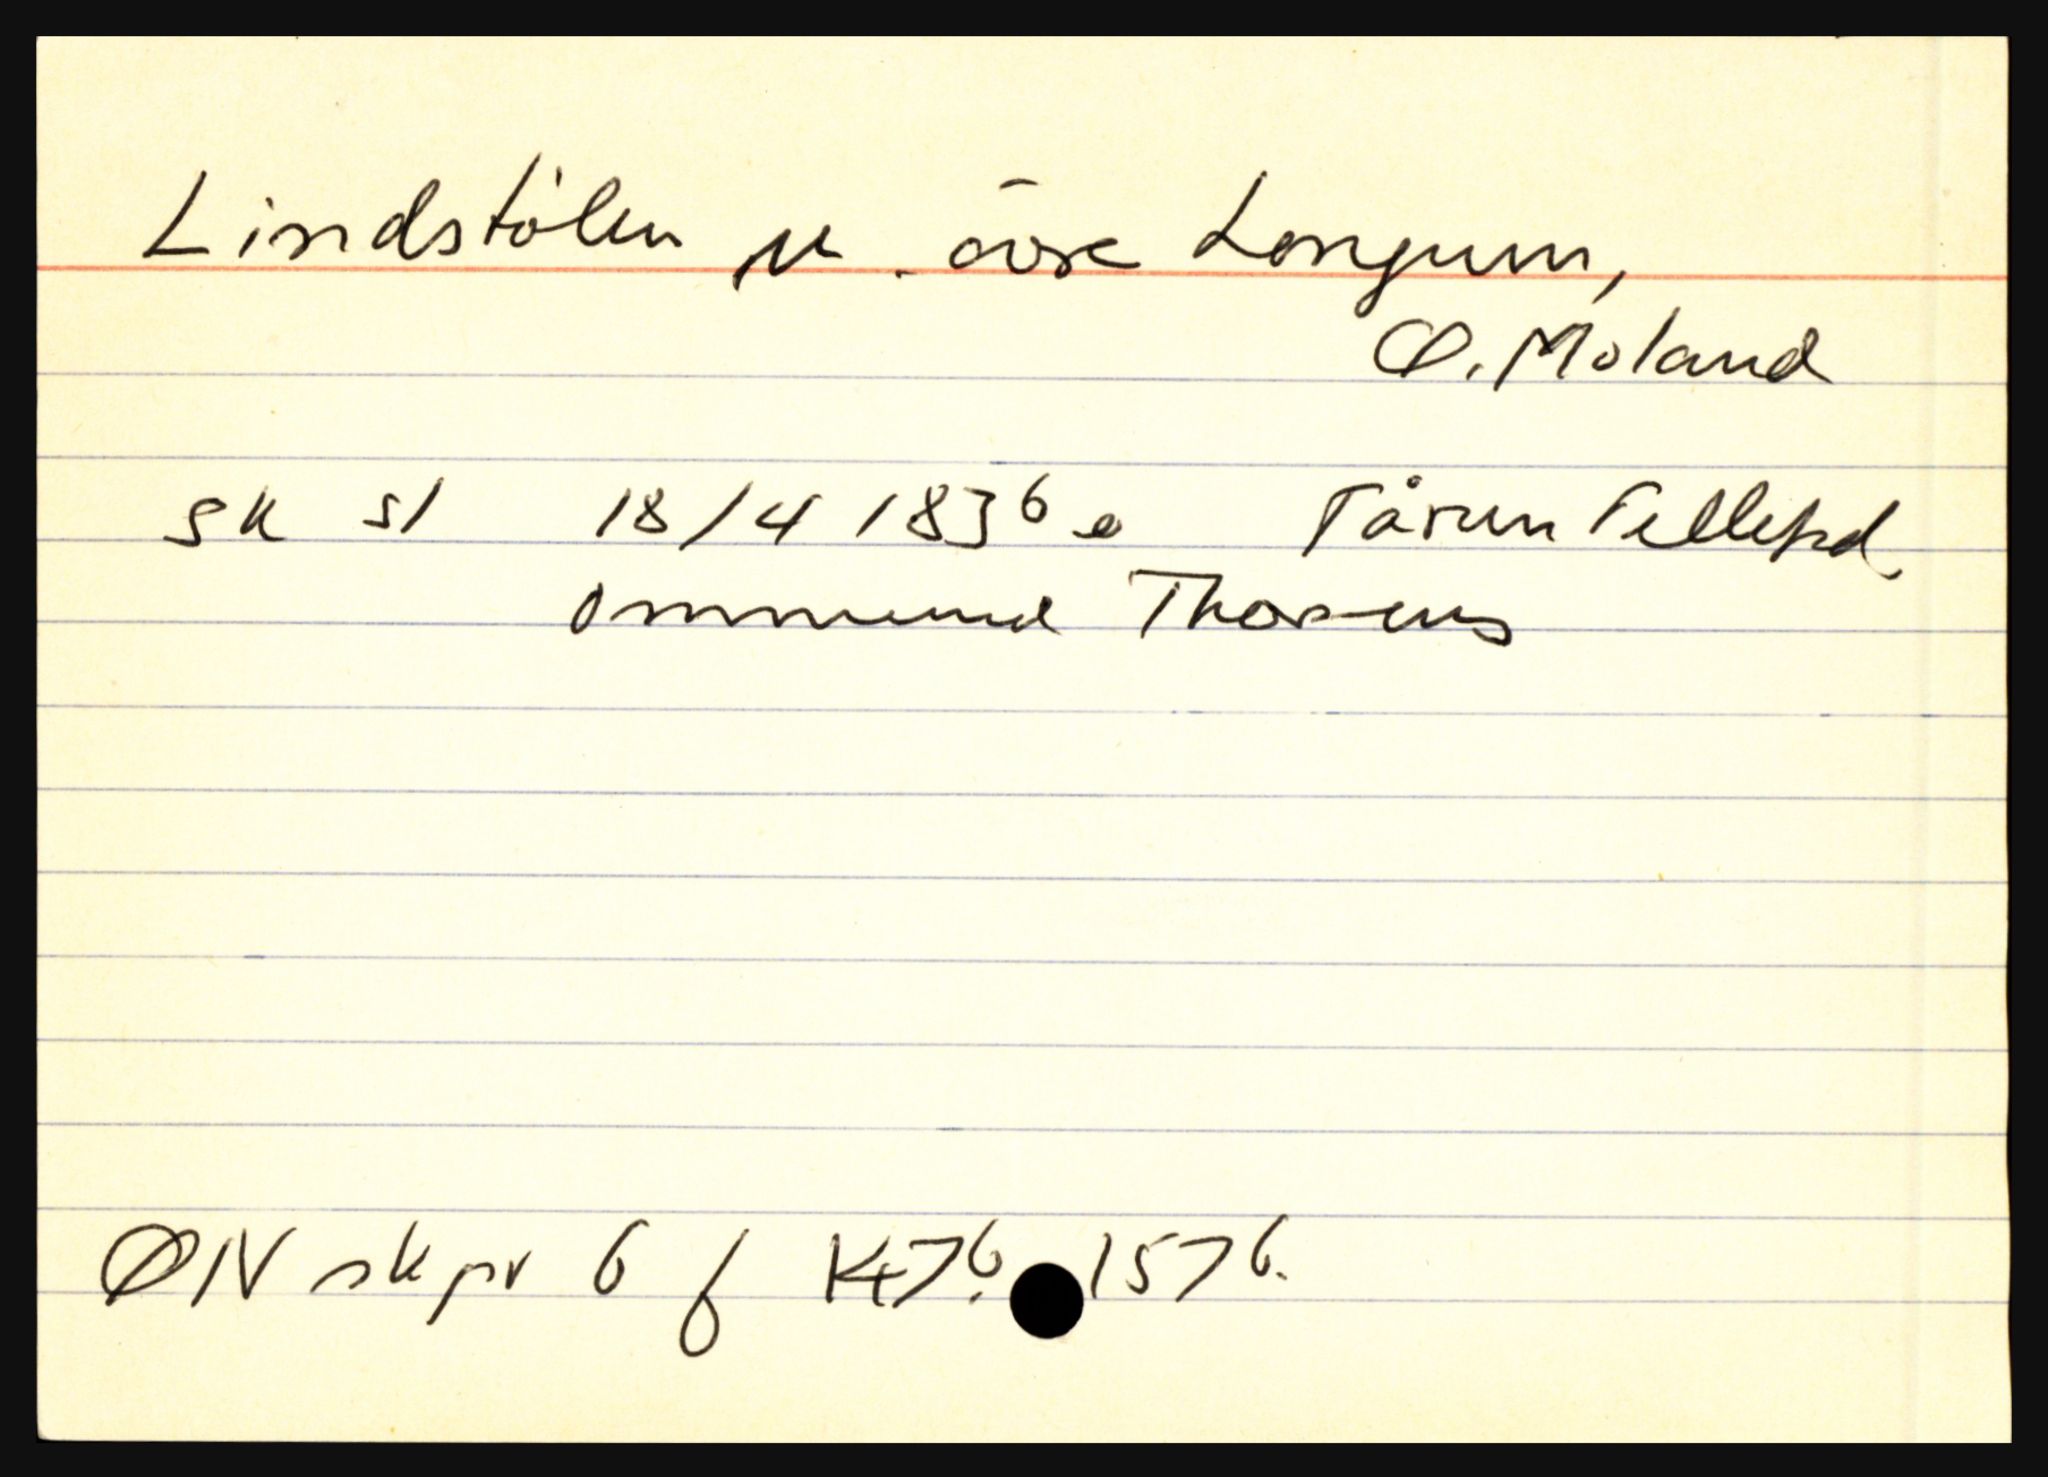 Lindstølen u. øvre Longum,
Ø. Moland
sk sl 18/4 1836 e Tårun Tellefsd
Ommund Thorsens
ØN skpr 6 f 1476. 1576.